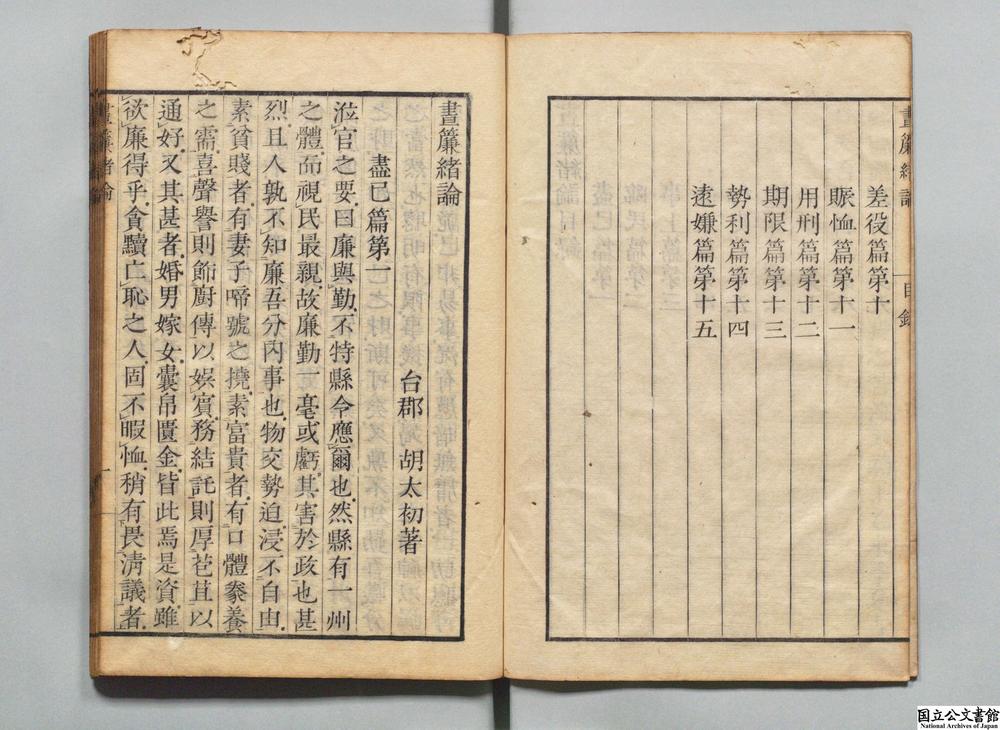 差役篇第十
賑恤篇第十一
用刑篇第十二
期限篇第十三
勢利篇第十四
遠嫌篇第十五
晝簾緒論
目錄
晝簾緒論
盡已篇第一
台郡胡太初著
涖官之要曰廉與勤不特縣令應爾也然縣有一州
之體而視民最親故廉勤一毫或虧其害於政也甚
烈且人孰不知廉吾分內事也物交勢迫浸不自由
素貧賤者有妻子啼號之撓素富貴者有口體豢養
之需喜聲譽則飾廚傳以娯賓務結託則厚苞苴以
通好又其甚者婚男嫁女囊帛匱金皆此焉是資雖
欲廉得乎貪黷亡恥之人固不暇恤稍有畏淸議者
晝簾緒論
一
国立公文書館
National Archives of Japan